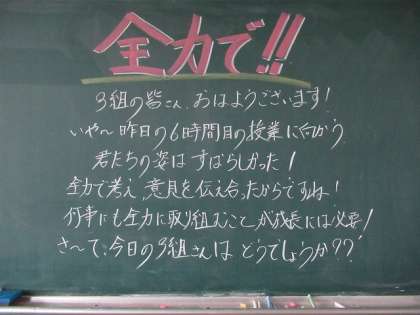 全力で!!
3組の皆さん、おはようございます!
いや〜昨日の6時間目の授業に向かう
君たちの姿はすばらしかった!
全力で考え、意見を伝え合ったからですね!
何事にも全力に取り組むことが成長には必要!
さ〜て、今日の3組さんはどうでしょうか??